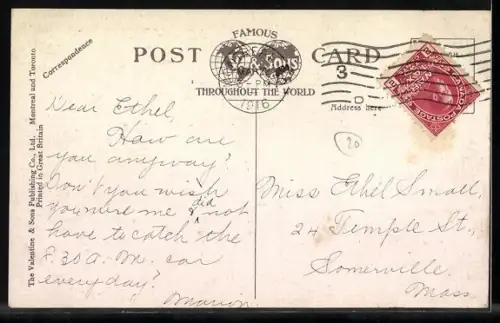 FAMOUS
POST CARD
& SONS
THROUGHOUT THE WORLD
1916
3
D
Correspondence
Address here
POSTAGE
The Valentine & Sons Publishing Co., Ltd. Montreal and Toronto
Printed in Great Britain
20
Dear Ethel,
How are
you anyway?
Don't you wish
you were me & did not
have to catch the
8.30 a. m. car
everyday?
Marion
Miss Ethel Small,
24 Temple St.,
Somerville,
Mass.